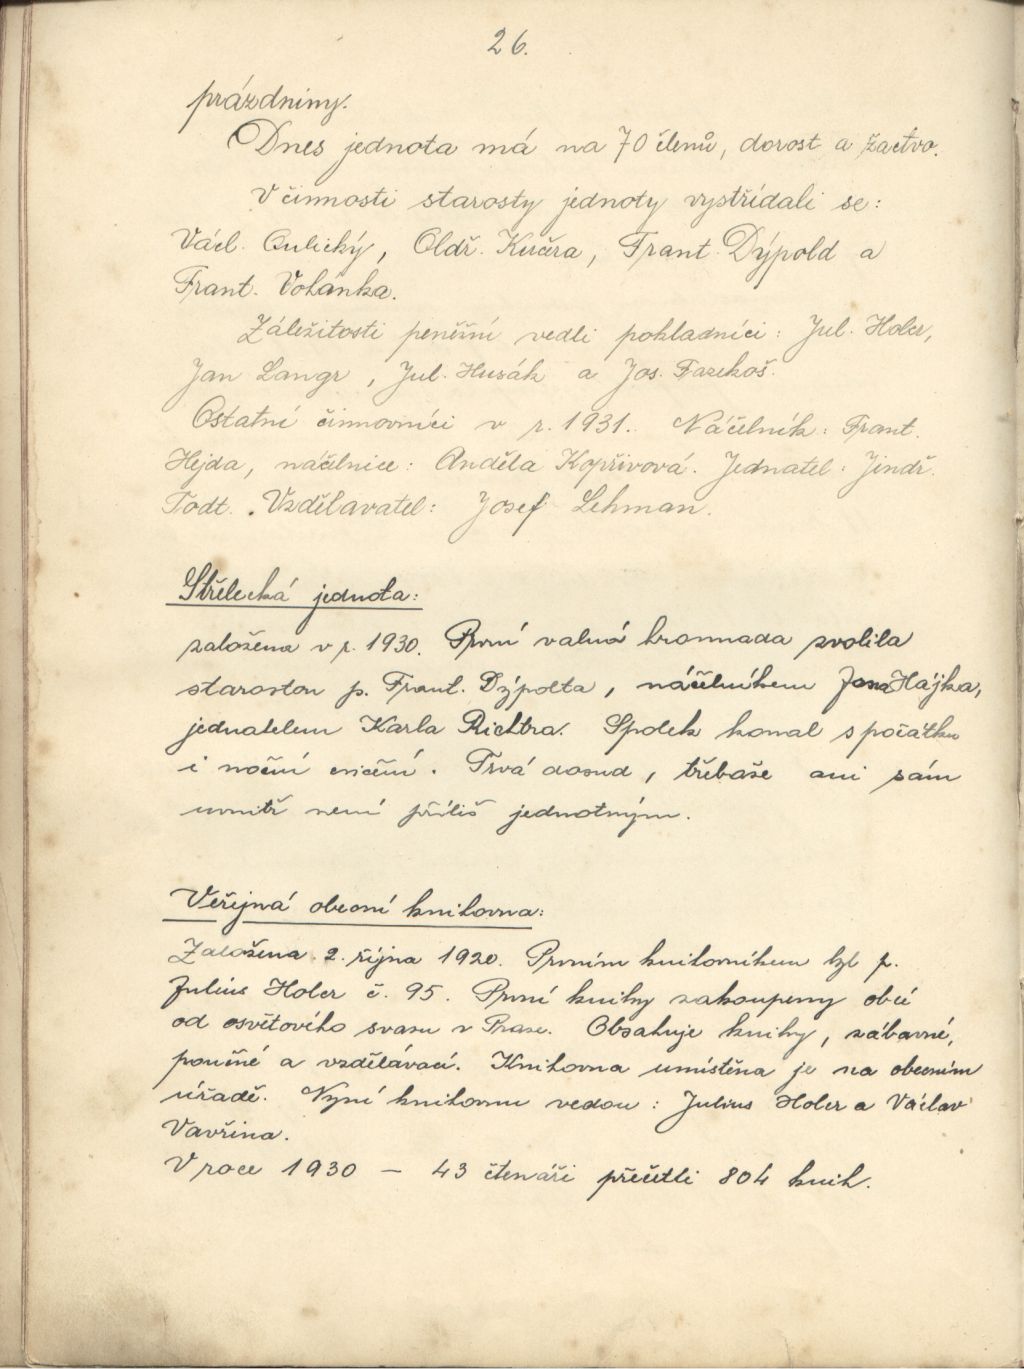 26.
prázdniny.
Dnes jednota má na 70 členů, dorost a žactvo.
V činnosti starosty jednoty vystřídali se:
Václ. Culický, Oldř. Kučera, Frant. Dýpold a
Frant. Volánka.
Záležitosti peněžní vedli pokladníci: Jul. Holer,
Jan Langr, Jul. Husák a Jos. Farekoš.
Ostatní činovníci v r. 1931. Náčelník: Frant.
Hejda, náčelnice: Anděla Kopřivová. Jednatel: Jindř.
Todt. Vzdělavatel: Josef Lehman.
Střelecká jednota:
založena v r. 1930. První valná hromada zvolila
starostou p. Frant. Dýpolta, náčelníkem Jana Hájka,
jednatelem Karla Richtra. Spolek konal s počátku
i noční cvičení. Trvá dosud, třebaže ani sám
uvnitř není příliš jednotným.
Veřejná obecní knihovna:
Založena 2. října 1920. Prvním knihovníkem byl p.
Julius Holer č. 95. První knihy zakoupeny obcí
od osvětového svazu v Praze. Obsahuje knihy, zábavné,
poučné a vzdělávací. Knihovna umístěna je na obecním
úřadě. Nyní knihovnu vedou: Julius Holer a Václav
Vavřina.
V roce 1930 – 43 čtenáři přečetli 804 knih.